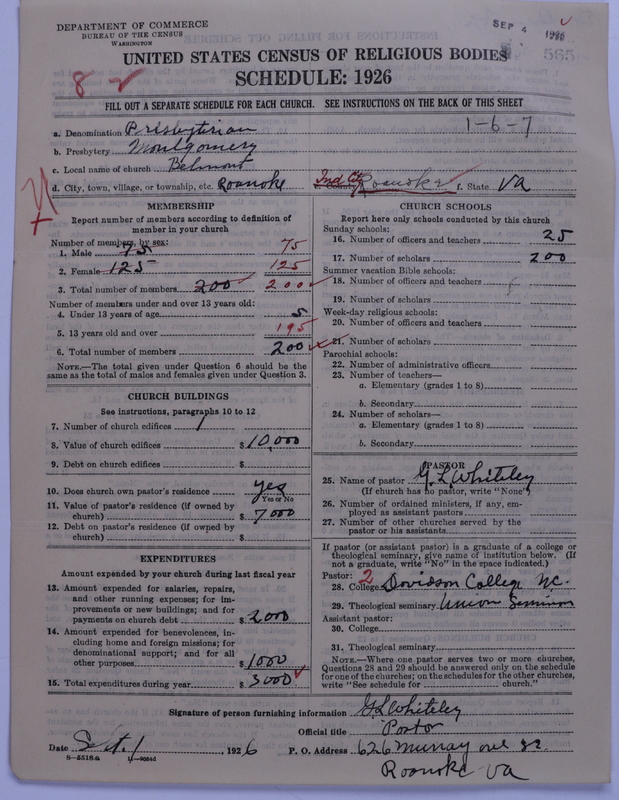 DEPARTMENT OF COMMERCE
BUREAU OF THE CENSUS
WASHINGTON
SEP 4 1926
565
UNITED STATES CENSUS OF RELIGIOUS BODIES
SCHEDULE: 1926
8
FILL OUT A SEPARATE SCHEDULE FOR EACH CHURCH. SEE INSTRUCTIONS ON THE BACK OF THIS SHEET
a. Denomination Presbyterian 1-6-7
b. Presbytery Montgomery
c. Local name of church Belmont
d. City, town, village, or township, etc. Roanoke Ind Ct Roanoke f. State Va
MEMBERSHIP
Report number of members according to definition of member in your church
Number of members, by sex:
1. Male 75 75
2. Female 125 125
3. Total number of members 200 200
Number of members under and over 13 years old:
4. Under 13 years of age 5
5. 13 years old and over 195
6. Total number of members 200
NOTE.—The total given under Question 6 should be the same as the total of males and females given under Question 3.
CHURCH BUILDINGS
See instructions, paragraphs 10 to 12
7. Number of church edifices 1
8. Value of church edifices $ 10,000
9. Debt on church edifices $
10. Does church own pastor's residence yes
Yes or No
11. Value of pastor's residence (if owned by church) $ 7000
12. Debt on pastor's residence (if owned by church) $
EXPENDITURES
Amount expended by your church during last fiscal year
13. Amount expended for salaries, repairs, and other running expenses; for improvements or new buildings; and for payments on church debt $ 2000
14. Amount expended for benevolences, including home and foreign missions; for denominational support; and for all other purposes $ 1000
15. Total expenditures during year $ 3000
CHURCH SCHOOLS
Report here only schools conducted by this church
Sunday schools:
16. Number of officers and teachers 25
17. Number of scholars 200
Summer vacation Bible schools:
18. Number of officers and teachers
19. Number of scholars
Week-day religious schools:
20. Number of officers and teachers
21. Number of scholars
Parochial schools:
22. Number of administrative officers
23. Number of teachers—
a. Elementary (grades 1 to 8)
b. Secondary
24. Number of scholars—
a. Elementary (grades 1 to 8)
b. Secondary
PASTOR
25. Name of pastor G L Whiteley
(If church has no pastor, write "None")
26. Number of ordained ministers, if any, employed as assistant pastors
27. Number of other churches served by the pastor or his assistants
If pastor (or assistant pastor) is a graduate of a college or theological seminary, give name of institution below. (If not a graduate, write "No" in the space indicated.)
Pastor: 2
28. College Davidson College NC.
29. Theological seminary Union Seminary
Assistant pastor:
30. College
31. Theological seminary
NOTE.—Where one pastor serves two or more churches, Questions 28 and 29 should be answered only on the schedule for one of the churches; on the schedules for the other churches, write "See schedule for church."
Signature of person furnishing information G L Whiteley
Official title Pastor
Date Sept 1, 1926 P. O. Address 626 Murray ave se
8-5518a Roanoke Va